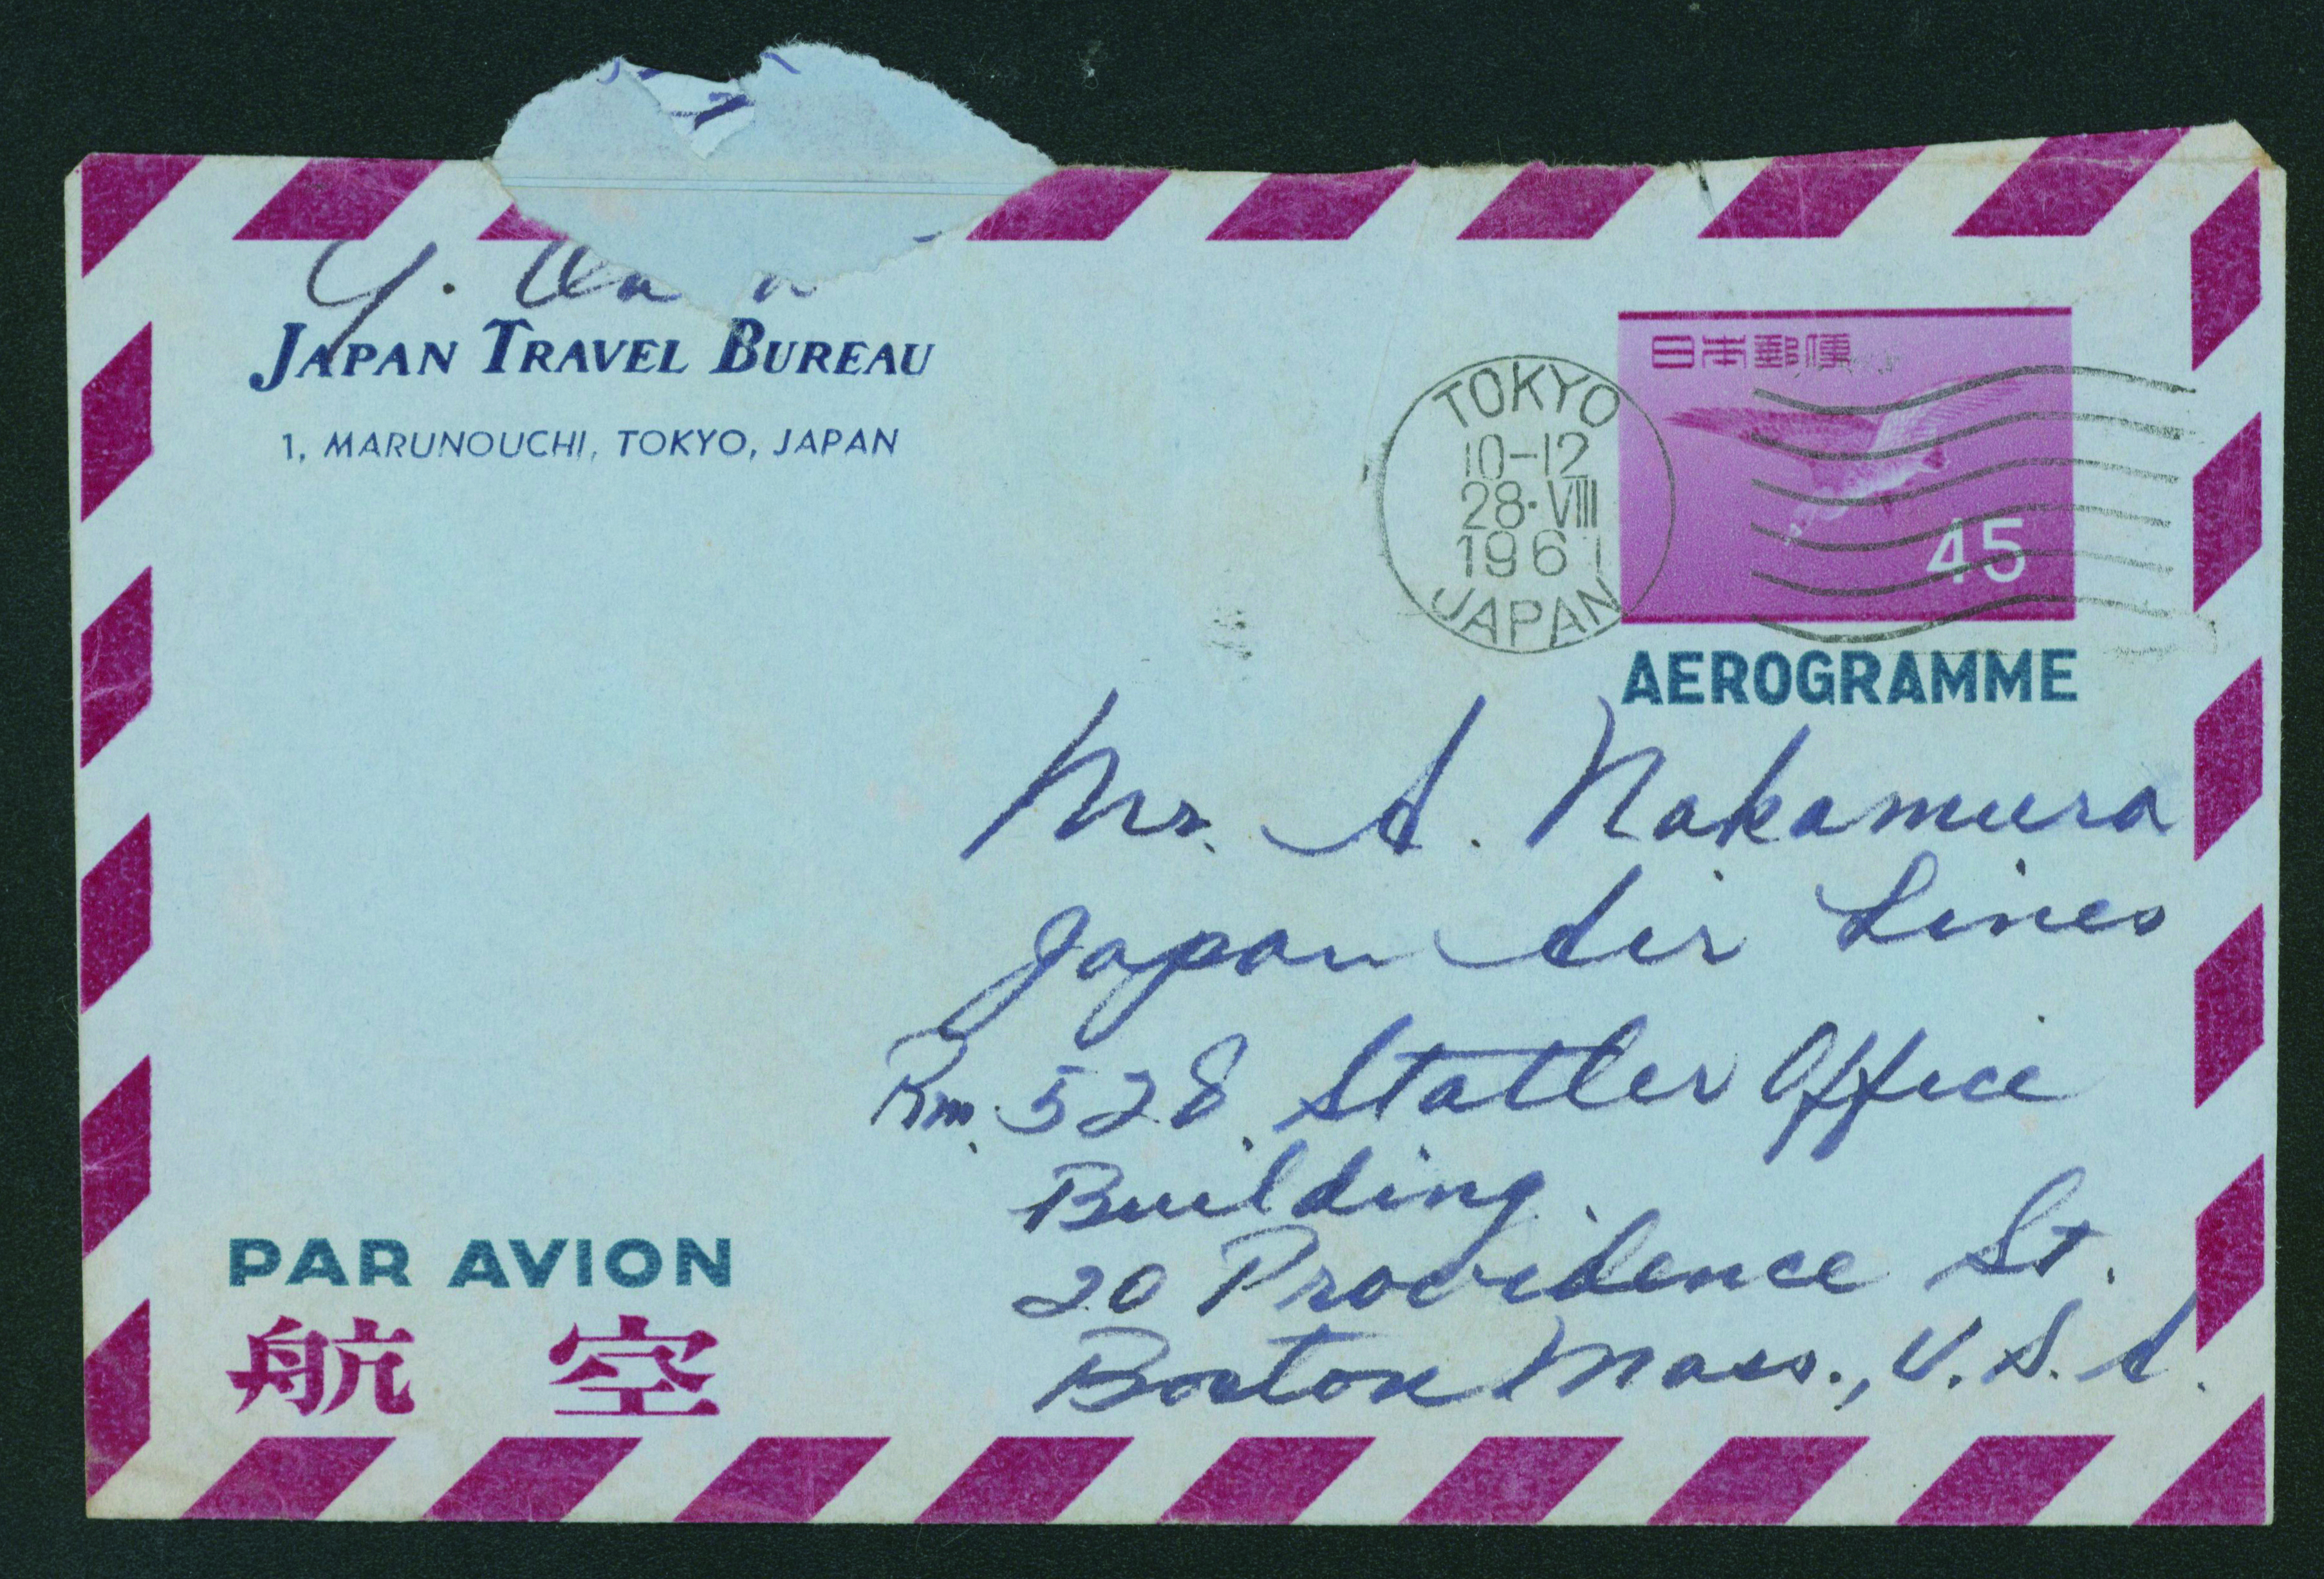 Y.
JAPAN TRAVEL BUREAU
1, MARUNOUCHI, TOKYO, JAPAN
日本郵便
45
TOKYO
10-12
28·VIII
1961
JAPAN
AEROGRAMME
Mr. A. Nakamura
Japan Air Lines
Rm. 528, Statler Office
Building.
20 Providence St.
Boston Mass., U.S.A.
PAR AVION
航空